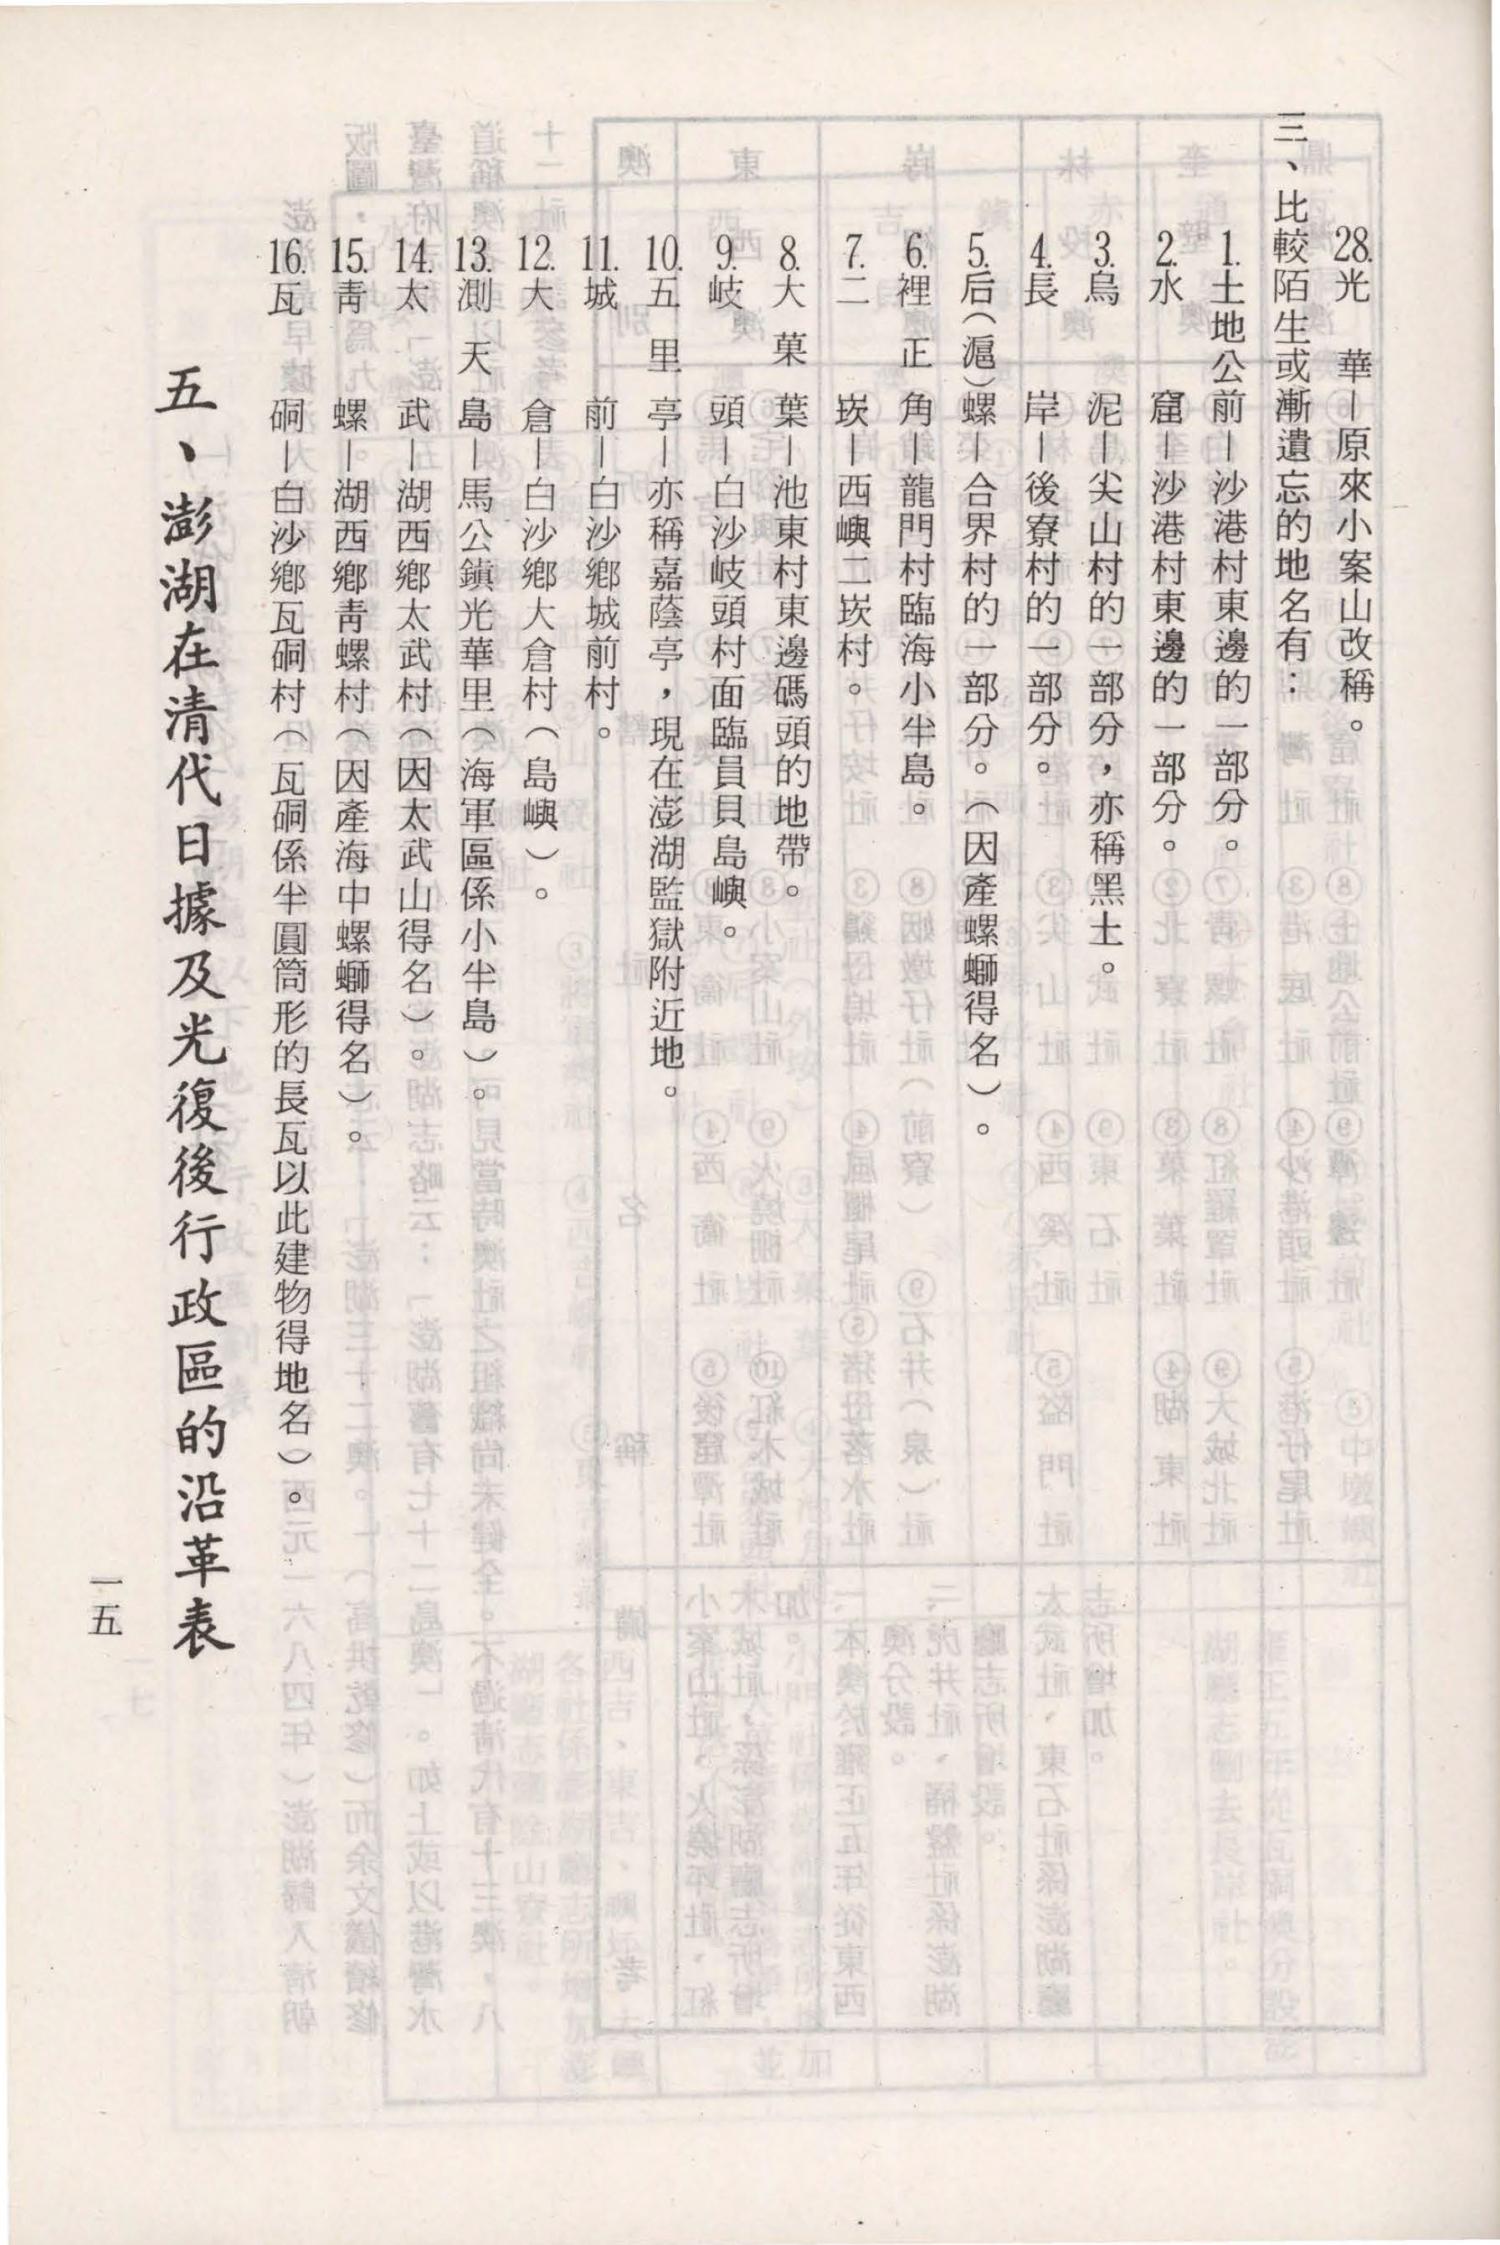 28.光華—原來小案山改稱。
三、比較陌生或漸遺忘的地名有：
1.土地公前—沙港村東邊的一部分。
2.水窟—沙港村東邊的一部分。
3.烏泥—尖山村的一部分，亦稱黑土。
4.長岸—後寮村的一部分。
5.后（滬）螺—合界村的一部分。（因產螺螄得名）。
6.裡正角—龍門村臨海小半島。
7.二崁—西嶼二崁村。
8.大菓葉—池東村東邊碼頭的地帶。
9.岐頭—白沙岐頭村面臨員貝島嶼。
10.五里亭—亦稱嘉蔭亭，現在澎湖監獄附近地。
11.城前—白沙鄉城前村。
12.大倉—白沙鄉大倉村（島嶼）。
13.測天島—馬公鎮光華里（海軍區係小半島）。
14.太武—湖西鄉太武村（因太武山得名）。
15.青螺—湖西鄉青螺村（因產海中螺螄得名）。
16.瓦硐—白沙鄉瓦硐村（瓦硐係半圓筒形的長瓦以此建物得地名）。
五、澎湖在清代日據及光復後行政區的沿革表
一五